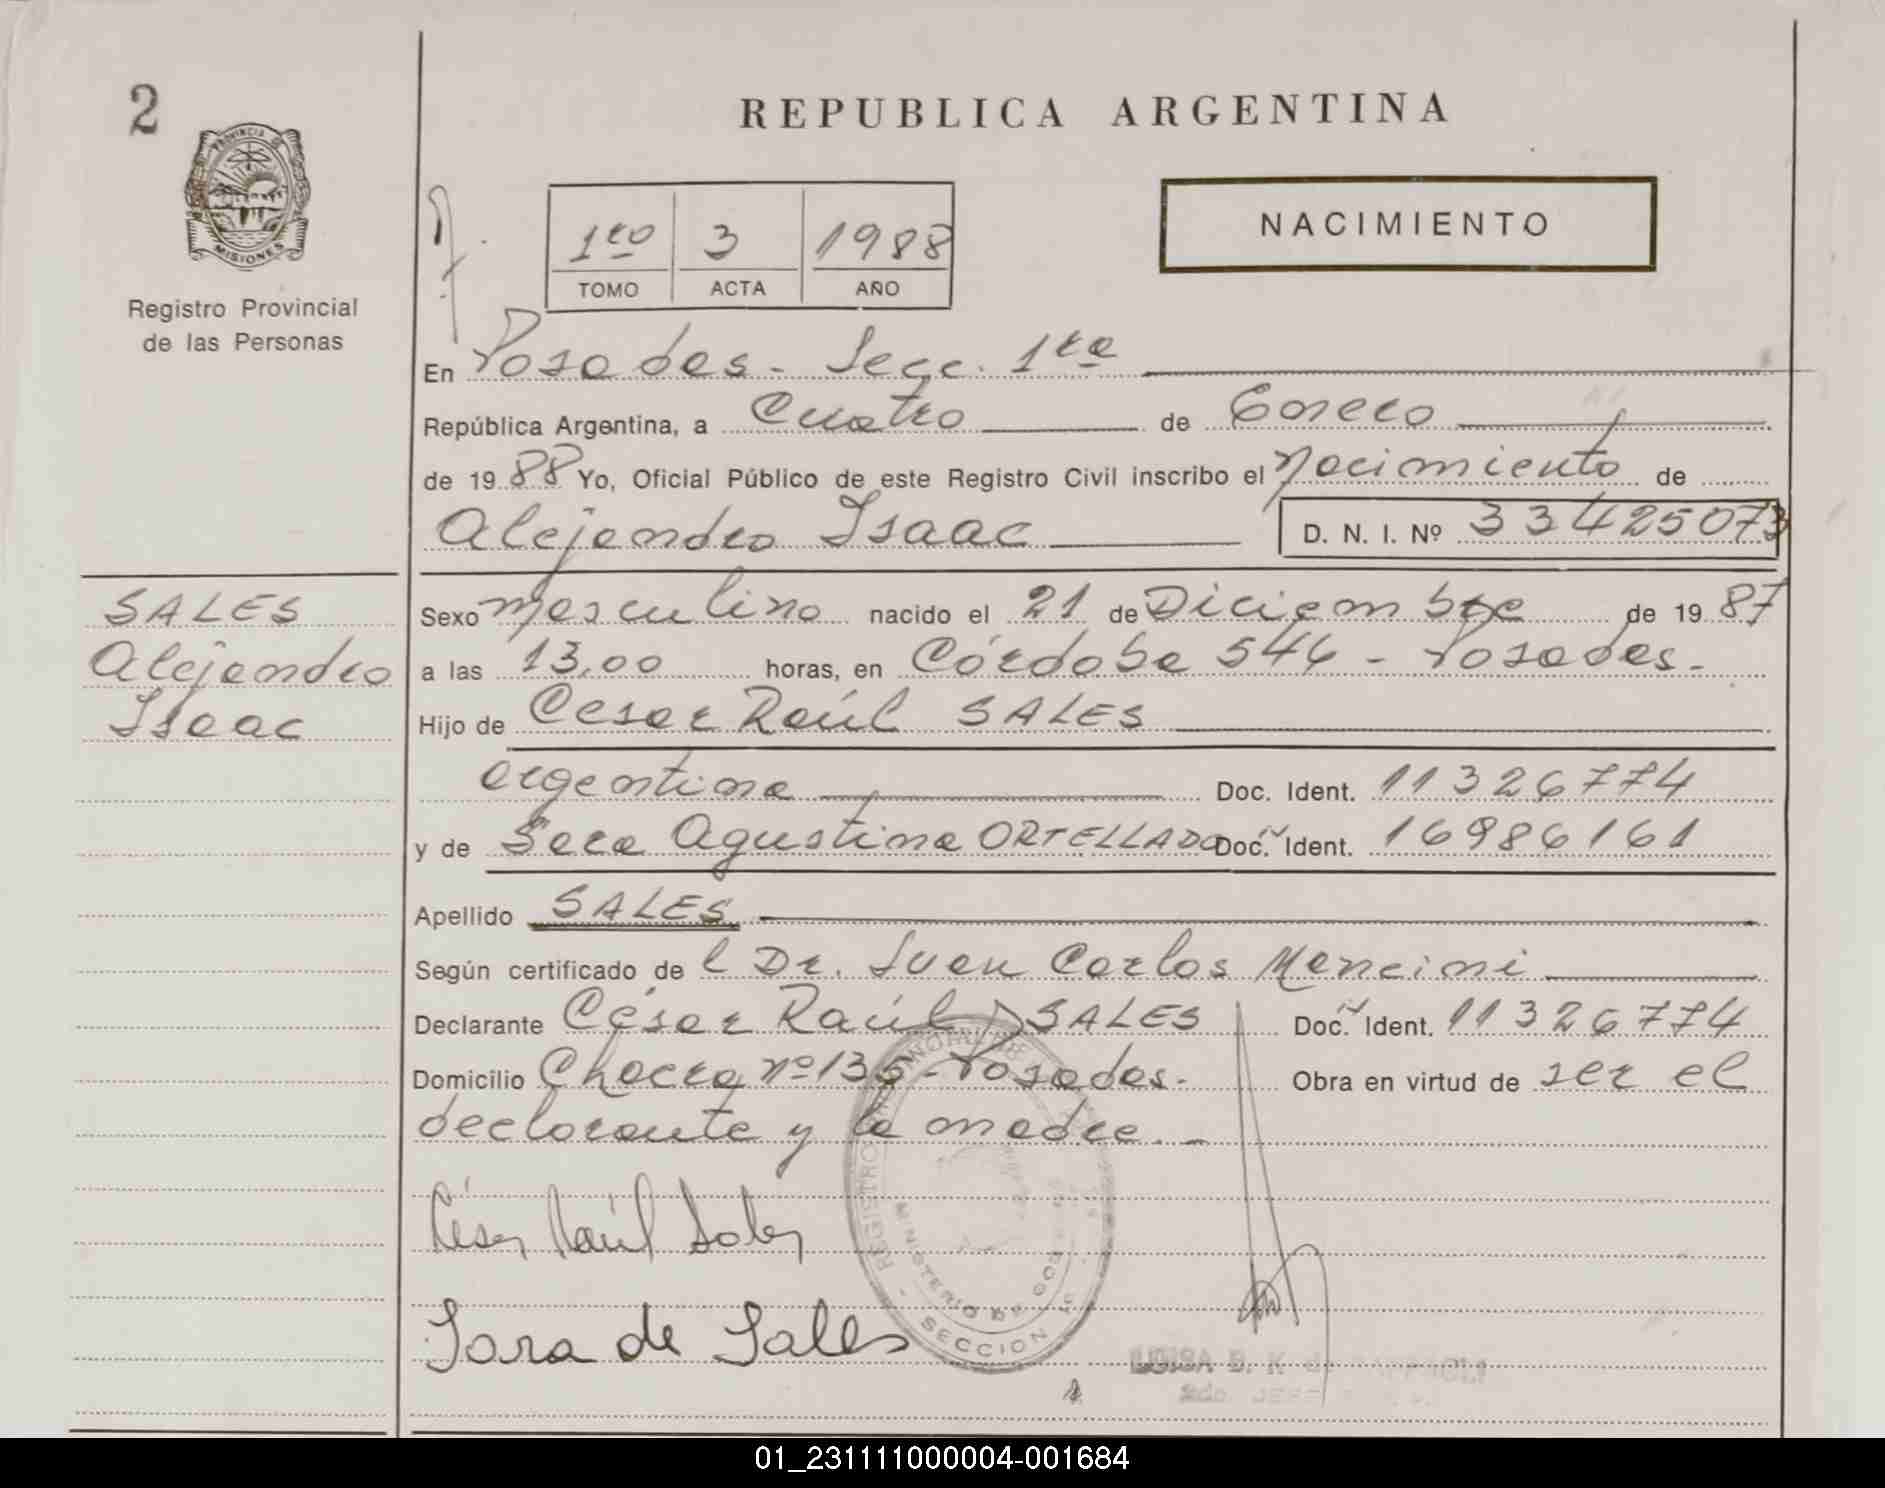 2
REPUBLICA ARGENTINA
PROVINCIA DE
MISIONES
Registro Provincial
de las Personas
1ro 3 1988
TOMO ACTA AÑO
NACIMIENTO
En Posadas - Secc. 1ra
República Argentina, a Cuatro de Enero
de 1988 Yo, Oficial Público de este Registro Civil inscribo el Nacimiento de
Alejandro Isaac D. N. I. Nº 33425073
SALES
Alejandro
Isaac
Sexo Masculino nacido el 21 de Diciembre de 1987
a las 13,00 horas, en Córdoba 546 - Posadas.-
Hijo de Cesar Raúl SALES
argentina Doc. Ident. 11326774
y de Sara Agustina ORTELLADO Doc. Ident. 16986161
Apellido SALES
Según certificado del Dr. Juan Carlos Mancini
Declarante César Raúl SALES Doc. Ident. 11326774
Domicilio Chacra nº 135 - Posadas.- Obra en virtud de ser el
declarante y la madre.-
César Raúl Sales
Sara de Sales
REGISTRO PROVINCIAL DE
MINISTERIO DE GOB
SECCION 1a
LUISA B. K de
2do JEFE
01_231111000004-001684